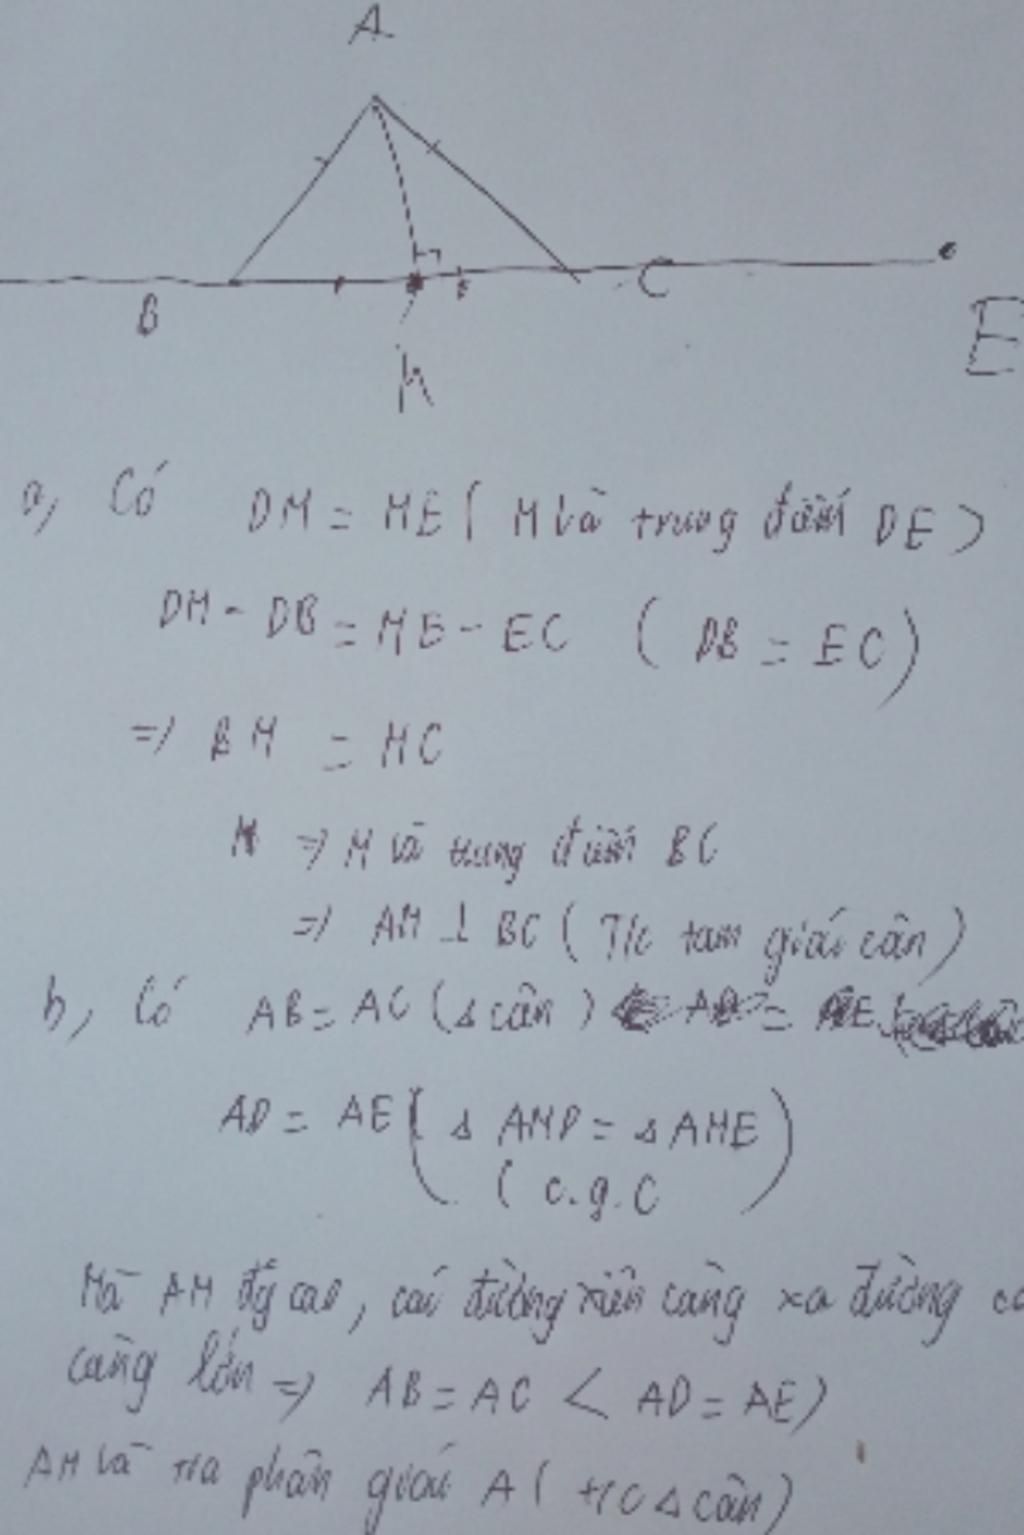 A
B
C
M
E
a, Có DM = ME ( M là trung điểm DE )
DM - DB = ME - EC ( DB = EC )
=> BM = MC
M => M là trung điểm BC
=> AM ⊥ BC ( T/c tam giác cân )
b, Có AB = AC ( Δ cân ) AD = AE
AD = AE ( Δ AMD = Δ AME )
( c.g.c
Mà AM đg cao, các đường xiên càng xa đường
càng lớn => AB = AC < AD = AE )
AM là tia phân giác A ( t/c Δ cân )